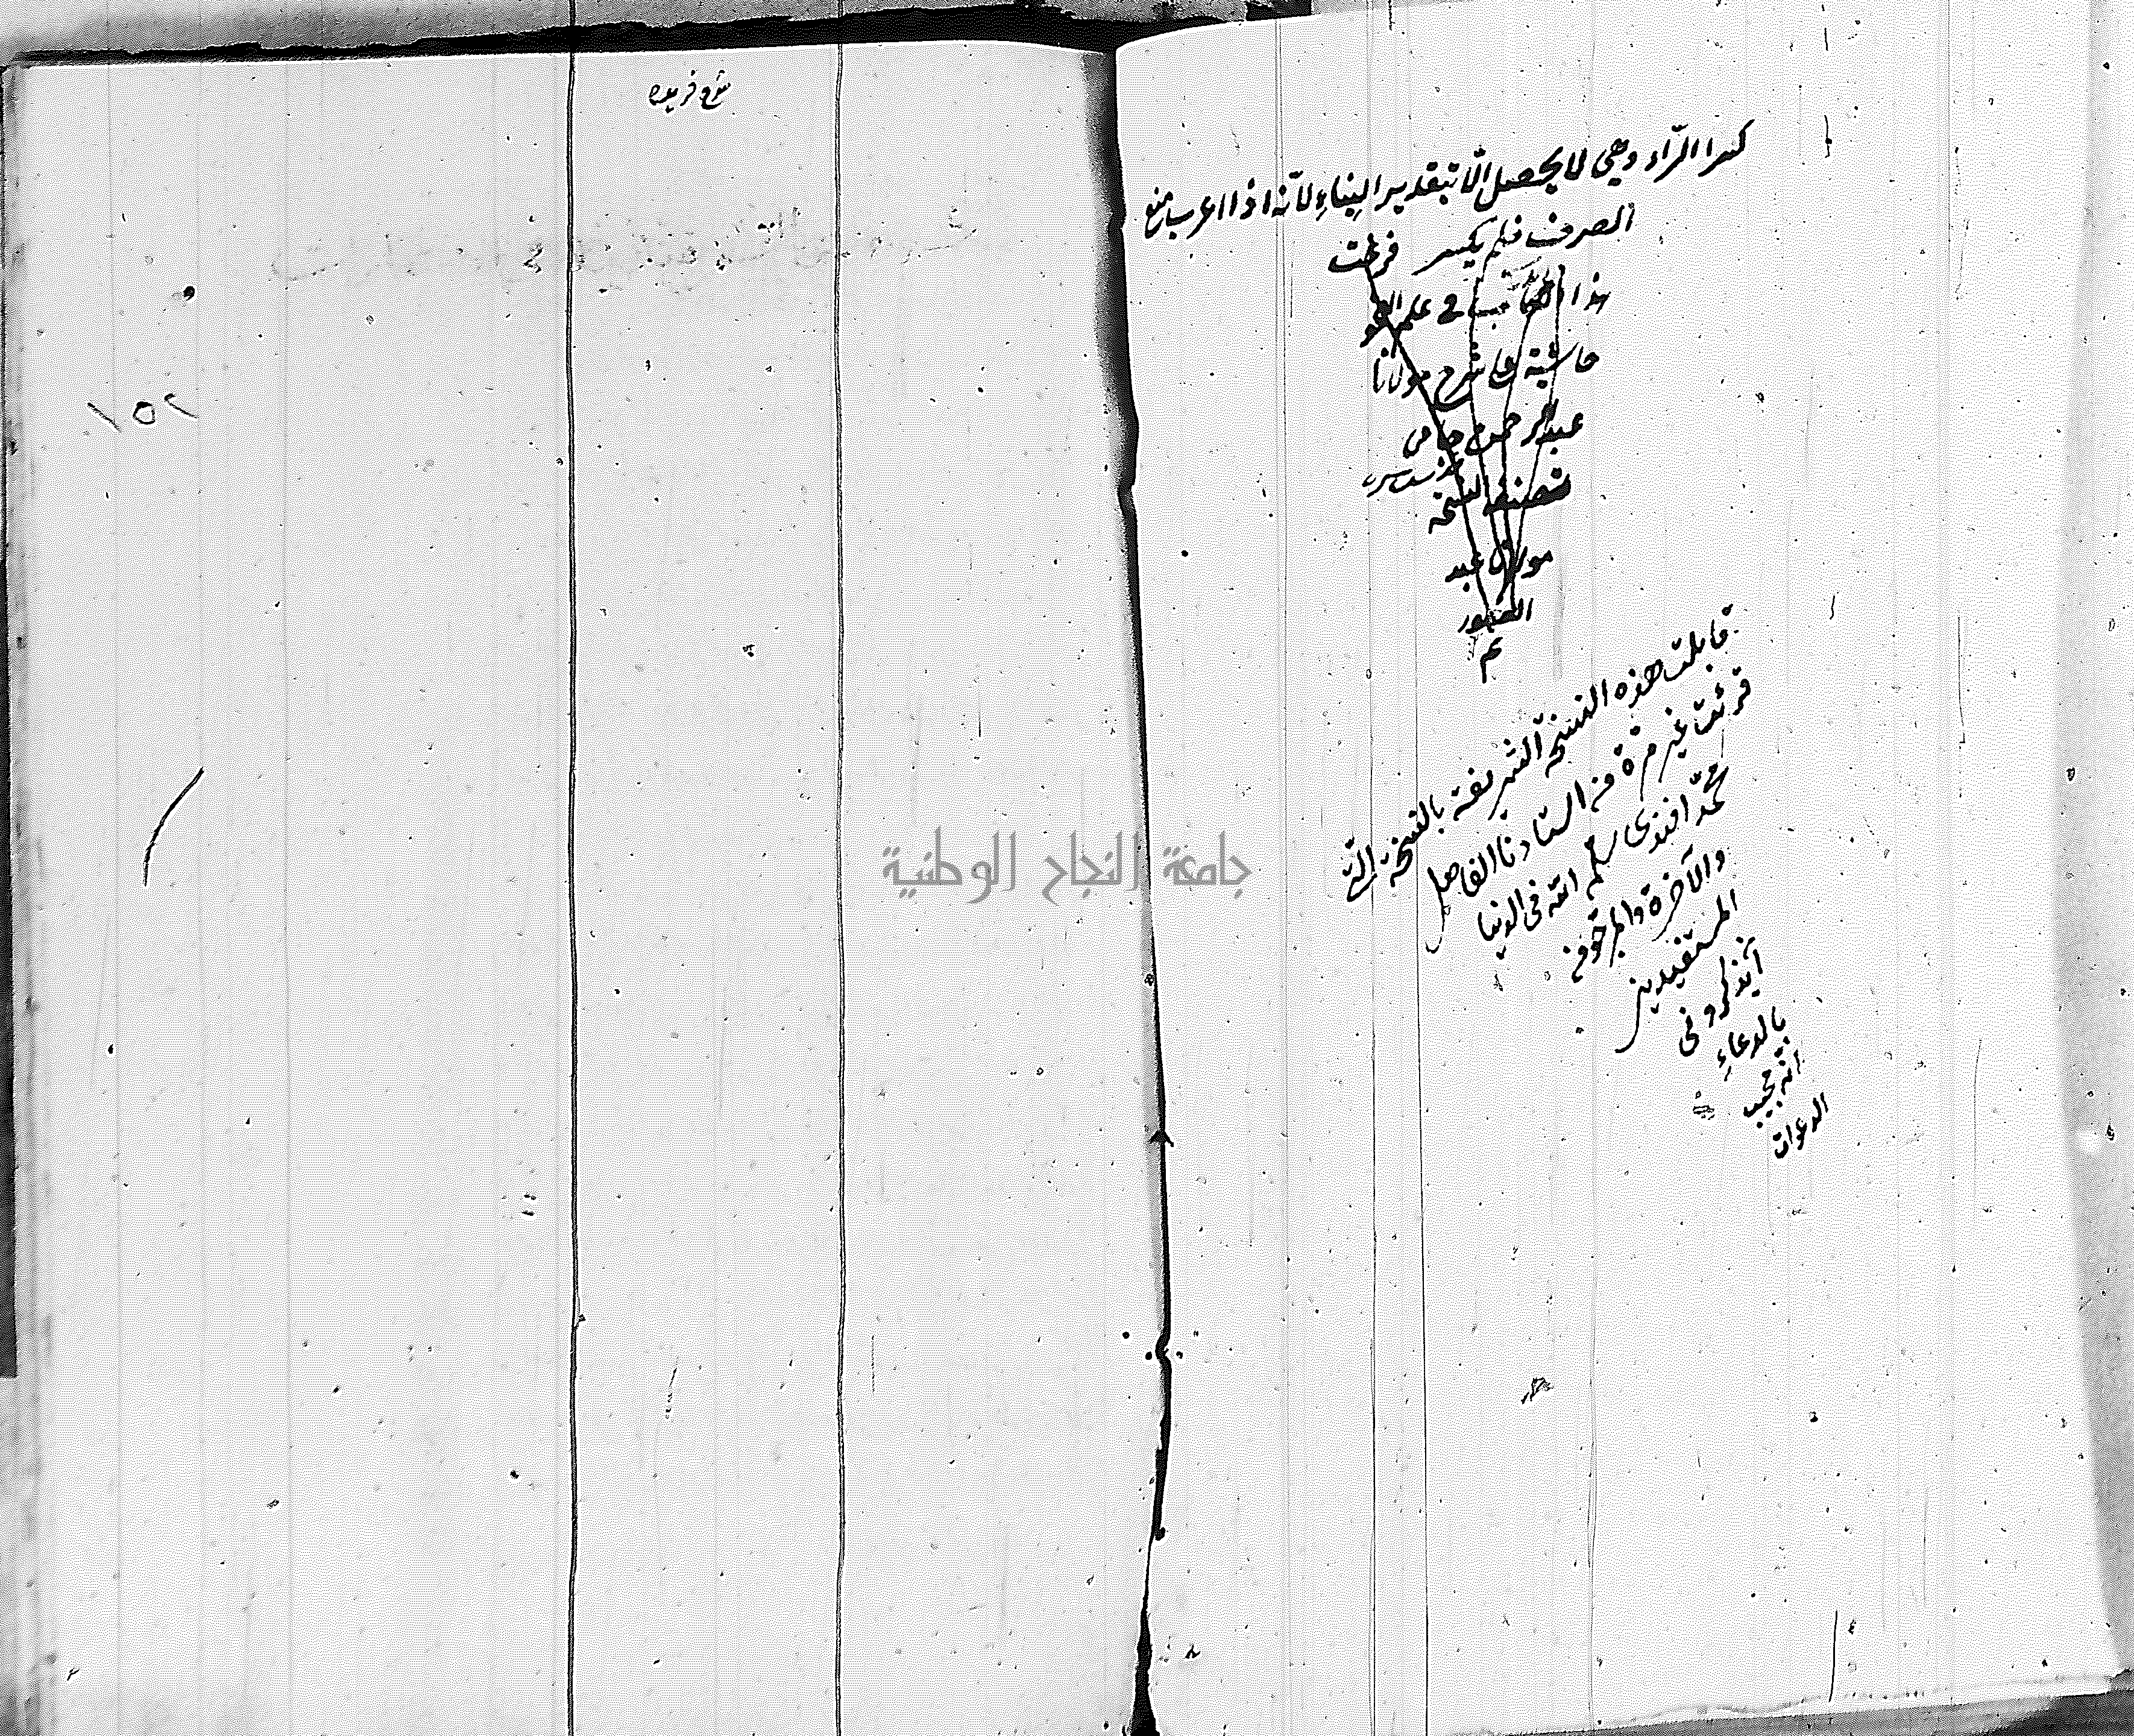 كسر الرّاء وهي لا يحصل الّا بتقدير البناءِ لانّه اذا اعرب منع
الصرف فلم يكسر فرغت
هذا الكتاب في علم النحو
حاشية على شرح مولانا
عبد الرحمن جامى
النسخة
مولانا عبد
الغفور
تم
قابلت هذه النسخة الشريفة بالنسخة التى
قرئت غير مرّة من استادنا الفاضل
محمّد افندى سلّمه الله فى الدنيا
والآخرة والمرجو من
المستفيدين
أن يذكرونى
بالدعاءِ
انّه مجيب
الدعوات
١٥٢
جامعة النجاح الوطنية